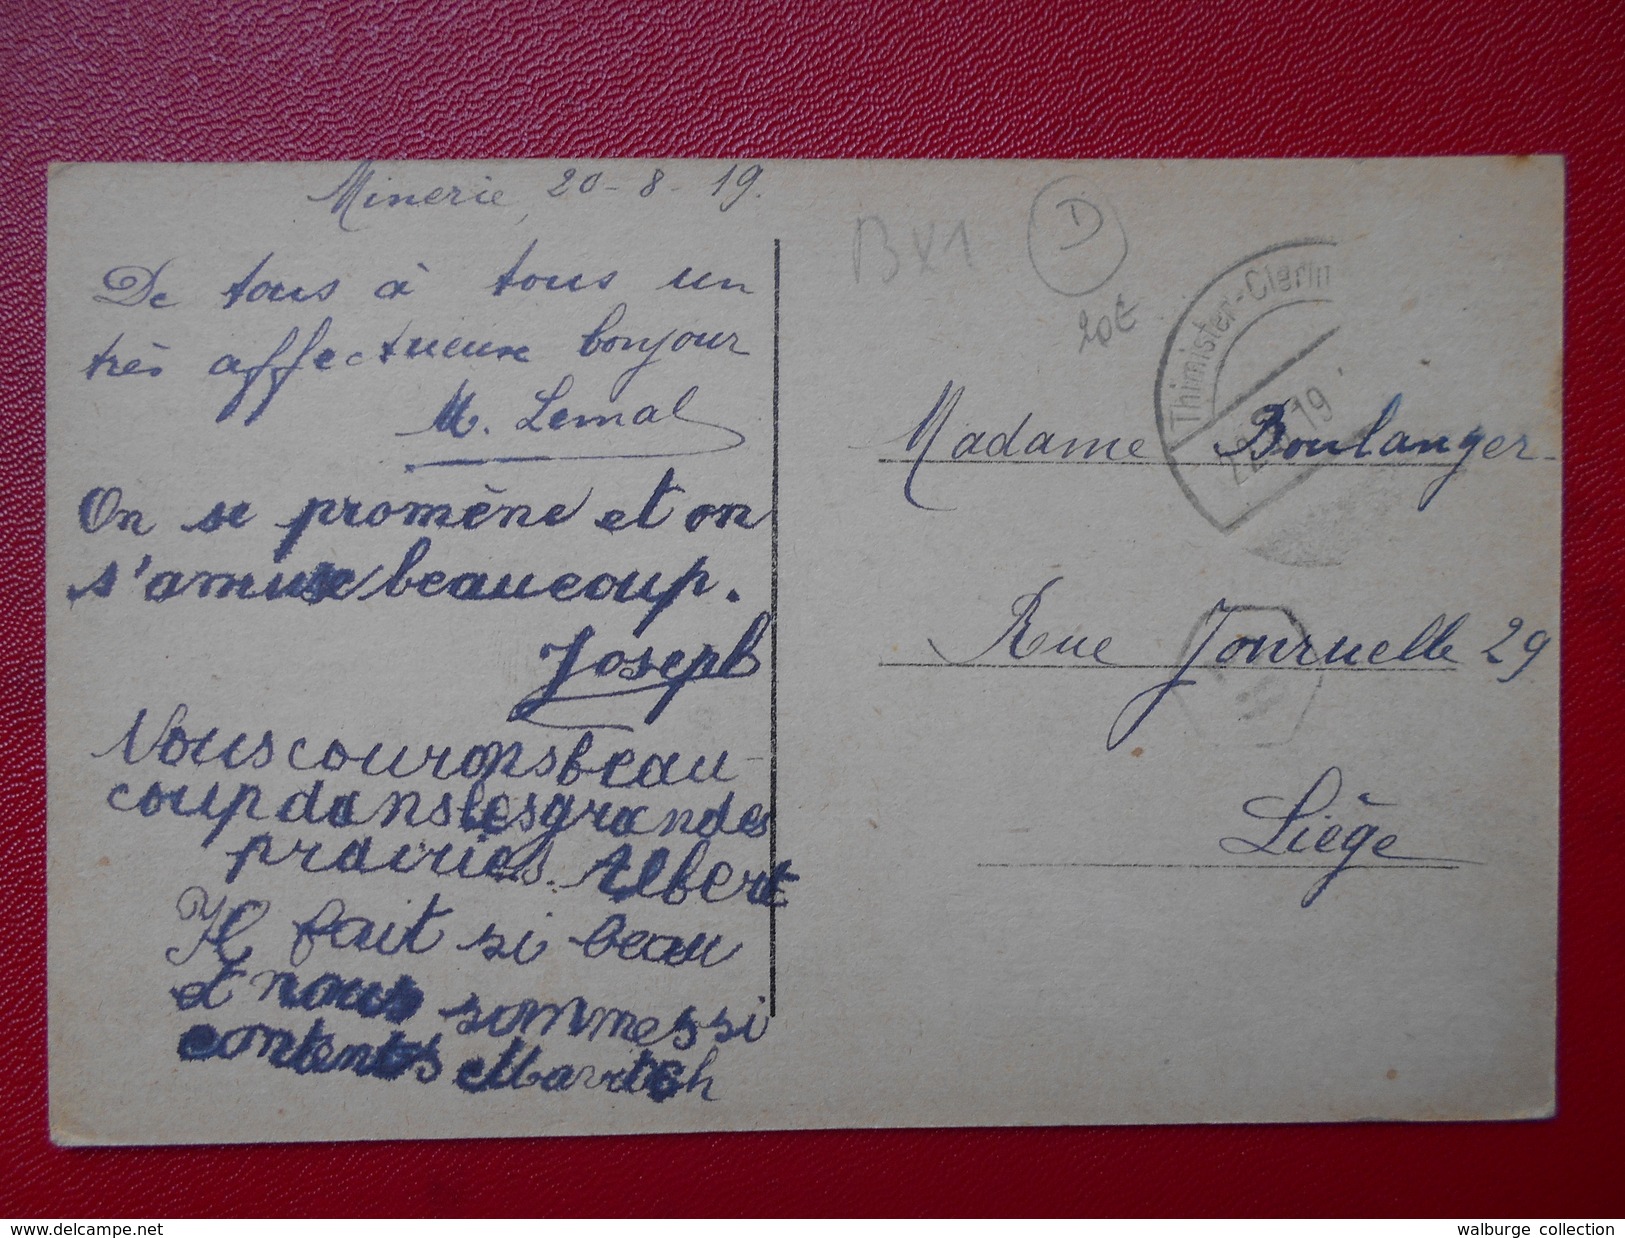 Minerie, 20-8-19.
De tous à tous un
très affectueux bonjour
M. Lemal
On se promène et on
s'amuse beaucoup.
Joseph
Nous courons beau-
coup dans les grandes
prairies. Albert
Il fait si beau
et nous sommes si
contents
BX1
D
20€
Thimister-Clerm
22 8 19
Madame Boulanger
Rue Jonruelle 29
Liège
delcampe.net
walburge collection